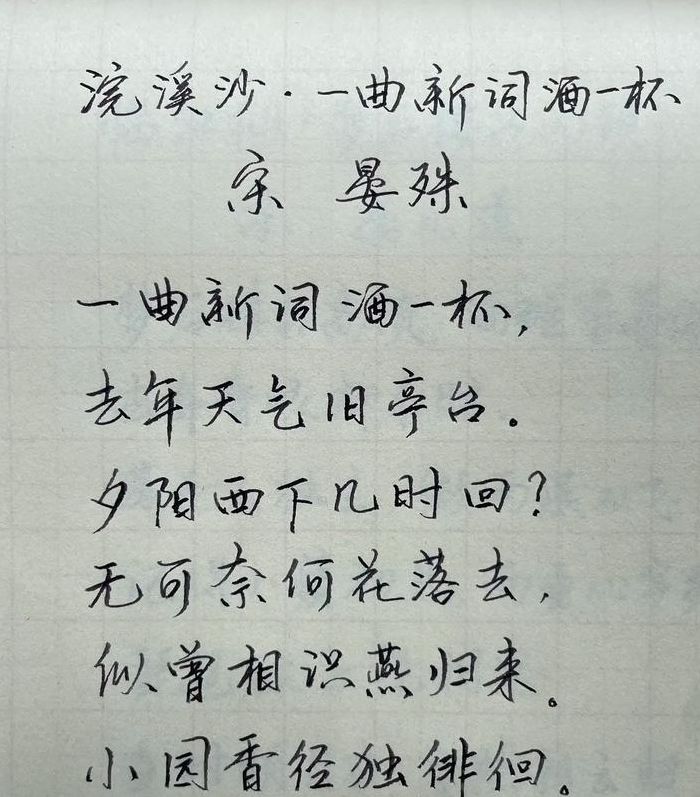 浣溪沙·一曲新词酒一杯
宋 晏殊
一曲新词酒一杯,
去年天气旧亭台。
夕阳西下几时回?
无可奈何花落去,
似曾相识燕归来。
小园香径独徘徊。